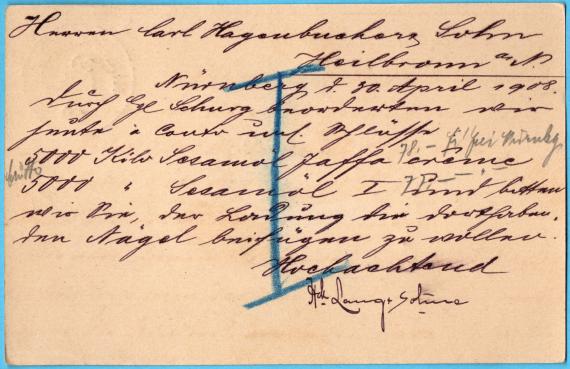 Herren Carl Hagenbuchers Sohn
Heilbronn a/N.
Nürnberg d. 30. April 1908.
durch Hl Schurg beorderten wir
heute a Conto uns. Schlüsse
5000 Kilo Sesamöl Jaffa Creme 78.– frei Nürnbg
brutto
5000 " Sesamöl I und bitten
wir Sie, der Ladung die dorthaben-
den Nägel beifügen zu wollen.
Hochachtend
Lang & Söhne